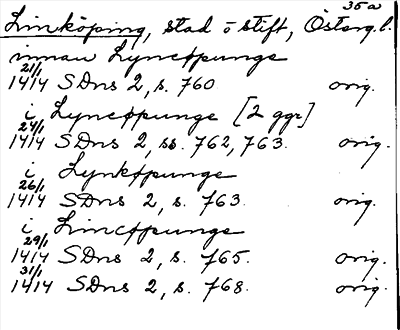 35a
Linköping, stad o stift, Österg.l.
innan Lyncøpunge
21/1
1414 SDns 2, s. 760 orig.
i Lyncøpunge [2 ggr]
24/1
1414 SDns 2, ss. 762, 763. orig.
i Lynkøpunge
26/1
1414 SDns 2, s. 763. orig.
i Lincøpunge
29/1
1414 SDns 2, s. 765. orig.
31/1
1414 SDns 2, s. 768. orig.